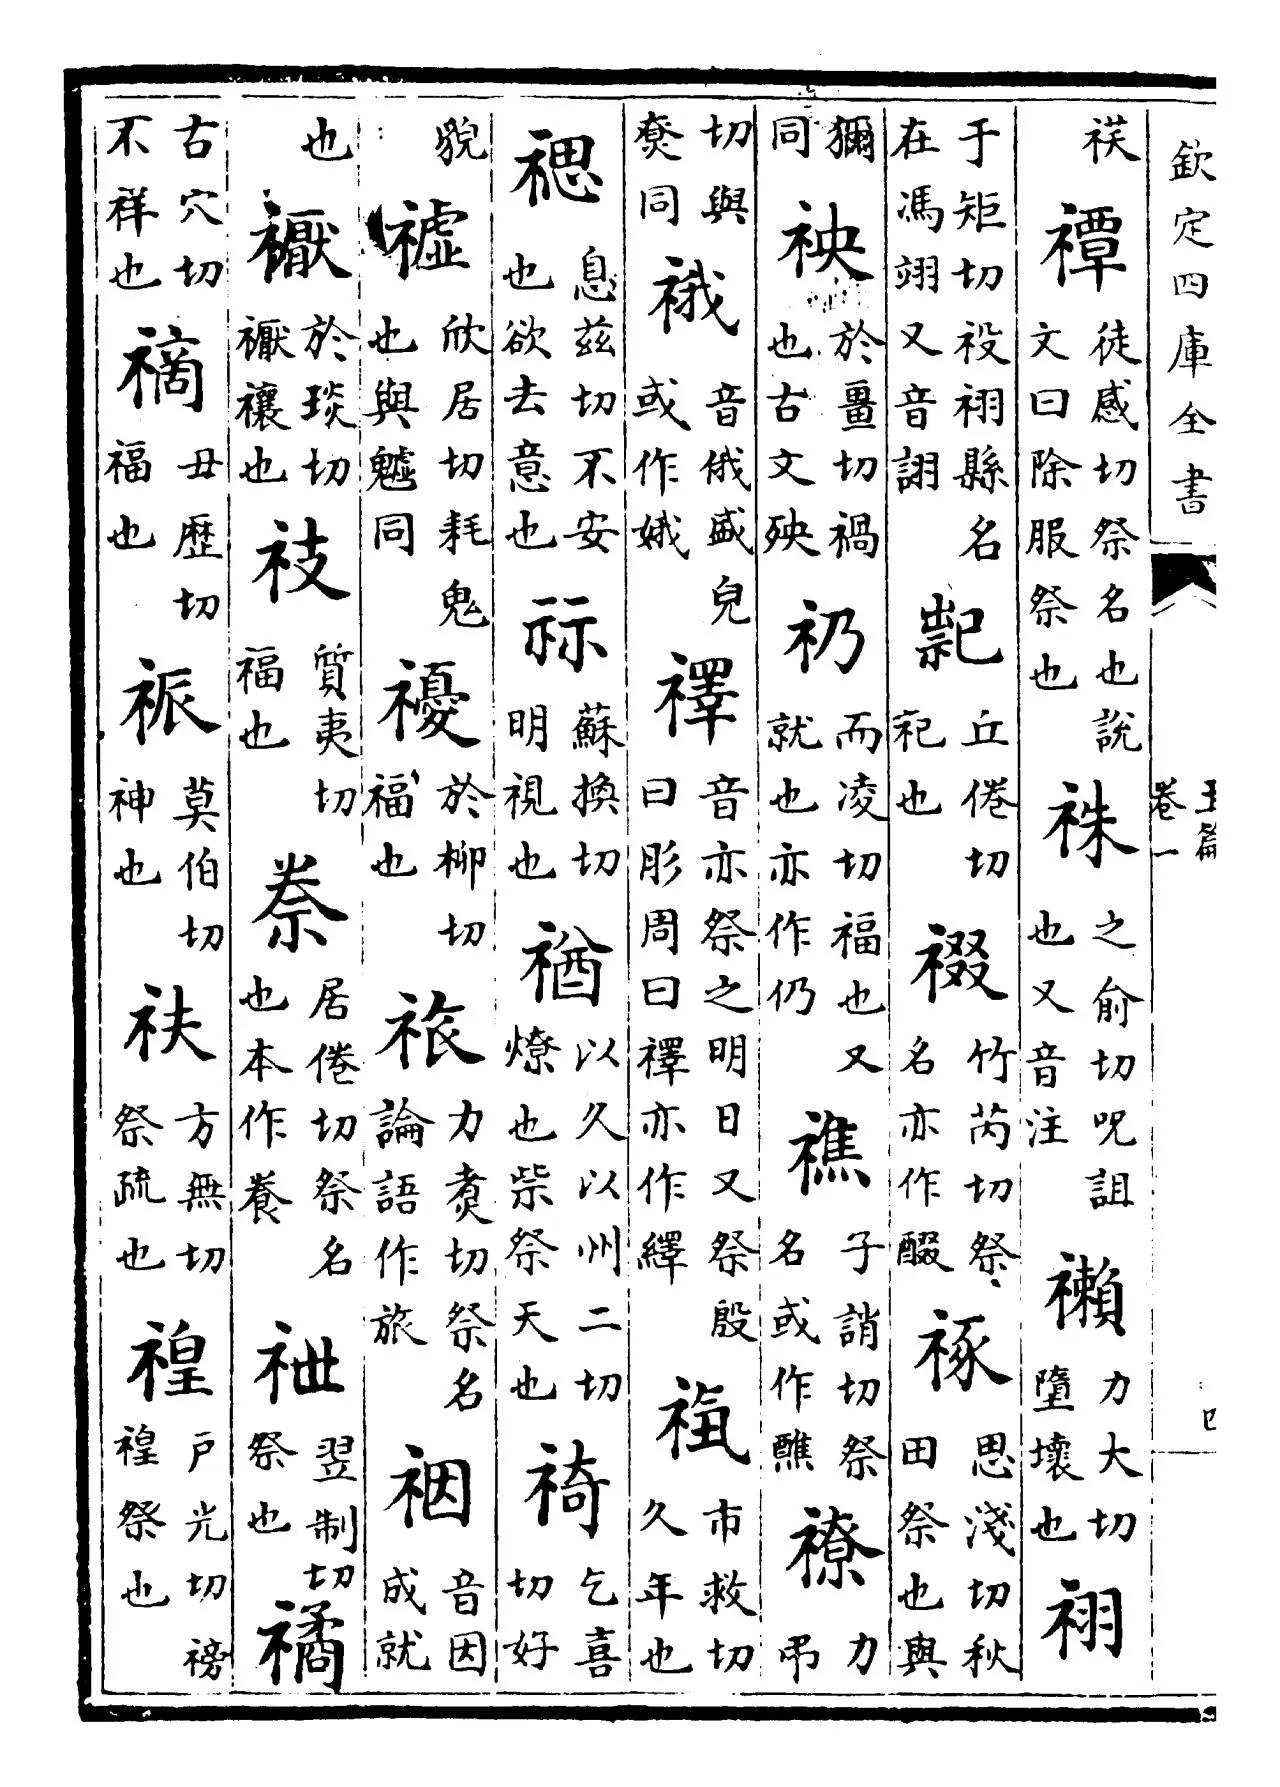 欽定四庫全書
玉篇
卷一
禫徒感切祭名也說文曰除服祭也祩之俞切呪詛也又音注力大切墮壞也祤
于矩切祋祤縣名在馮翊又音詡丘倦切祀也䄌竹芮切祭名亦作醊禒思淺切秋田祭也與
獮同䄃於畺切禍也古文殃礽而凌切福也又就也亦作仍子誚切祭名或作醮力弔
切與尞同䄉音俄盛皃或作娥音亦祭之明日又祭殷曰肜周曰亦作繹市救切久年也
禗息兹切不安也欲去意也祘蘇換切明視也禉以久以州二切燎也柴祭天也䄎乞喜切好
貌欣居切耗鬼也與魖同於柳切福也祣力煑切祭名論語作旅䄄音因成就
也於琰切禳也質夷切福也居倦切祭名也本作養䄁翌制切祭也
古穴切不祥也丑歷切福也莫伯切神也方無切祭疏也䄓戶光切䄓祭也